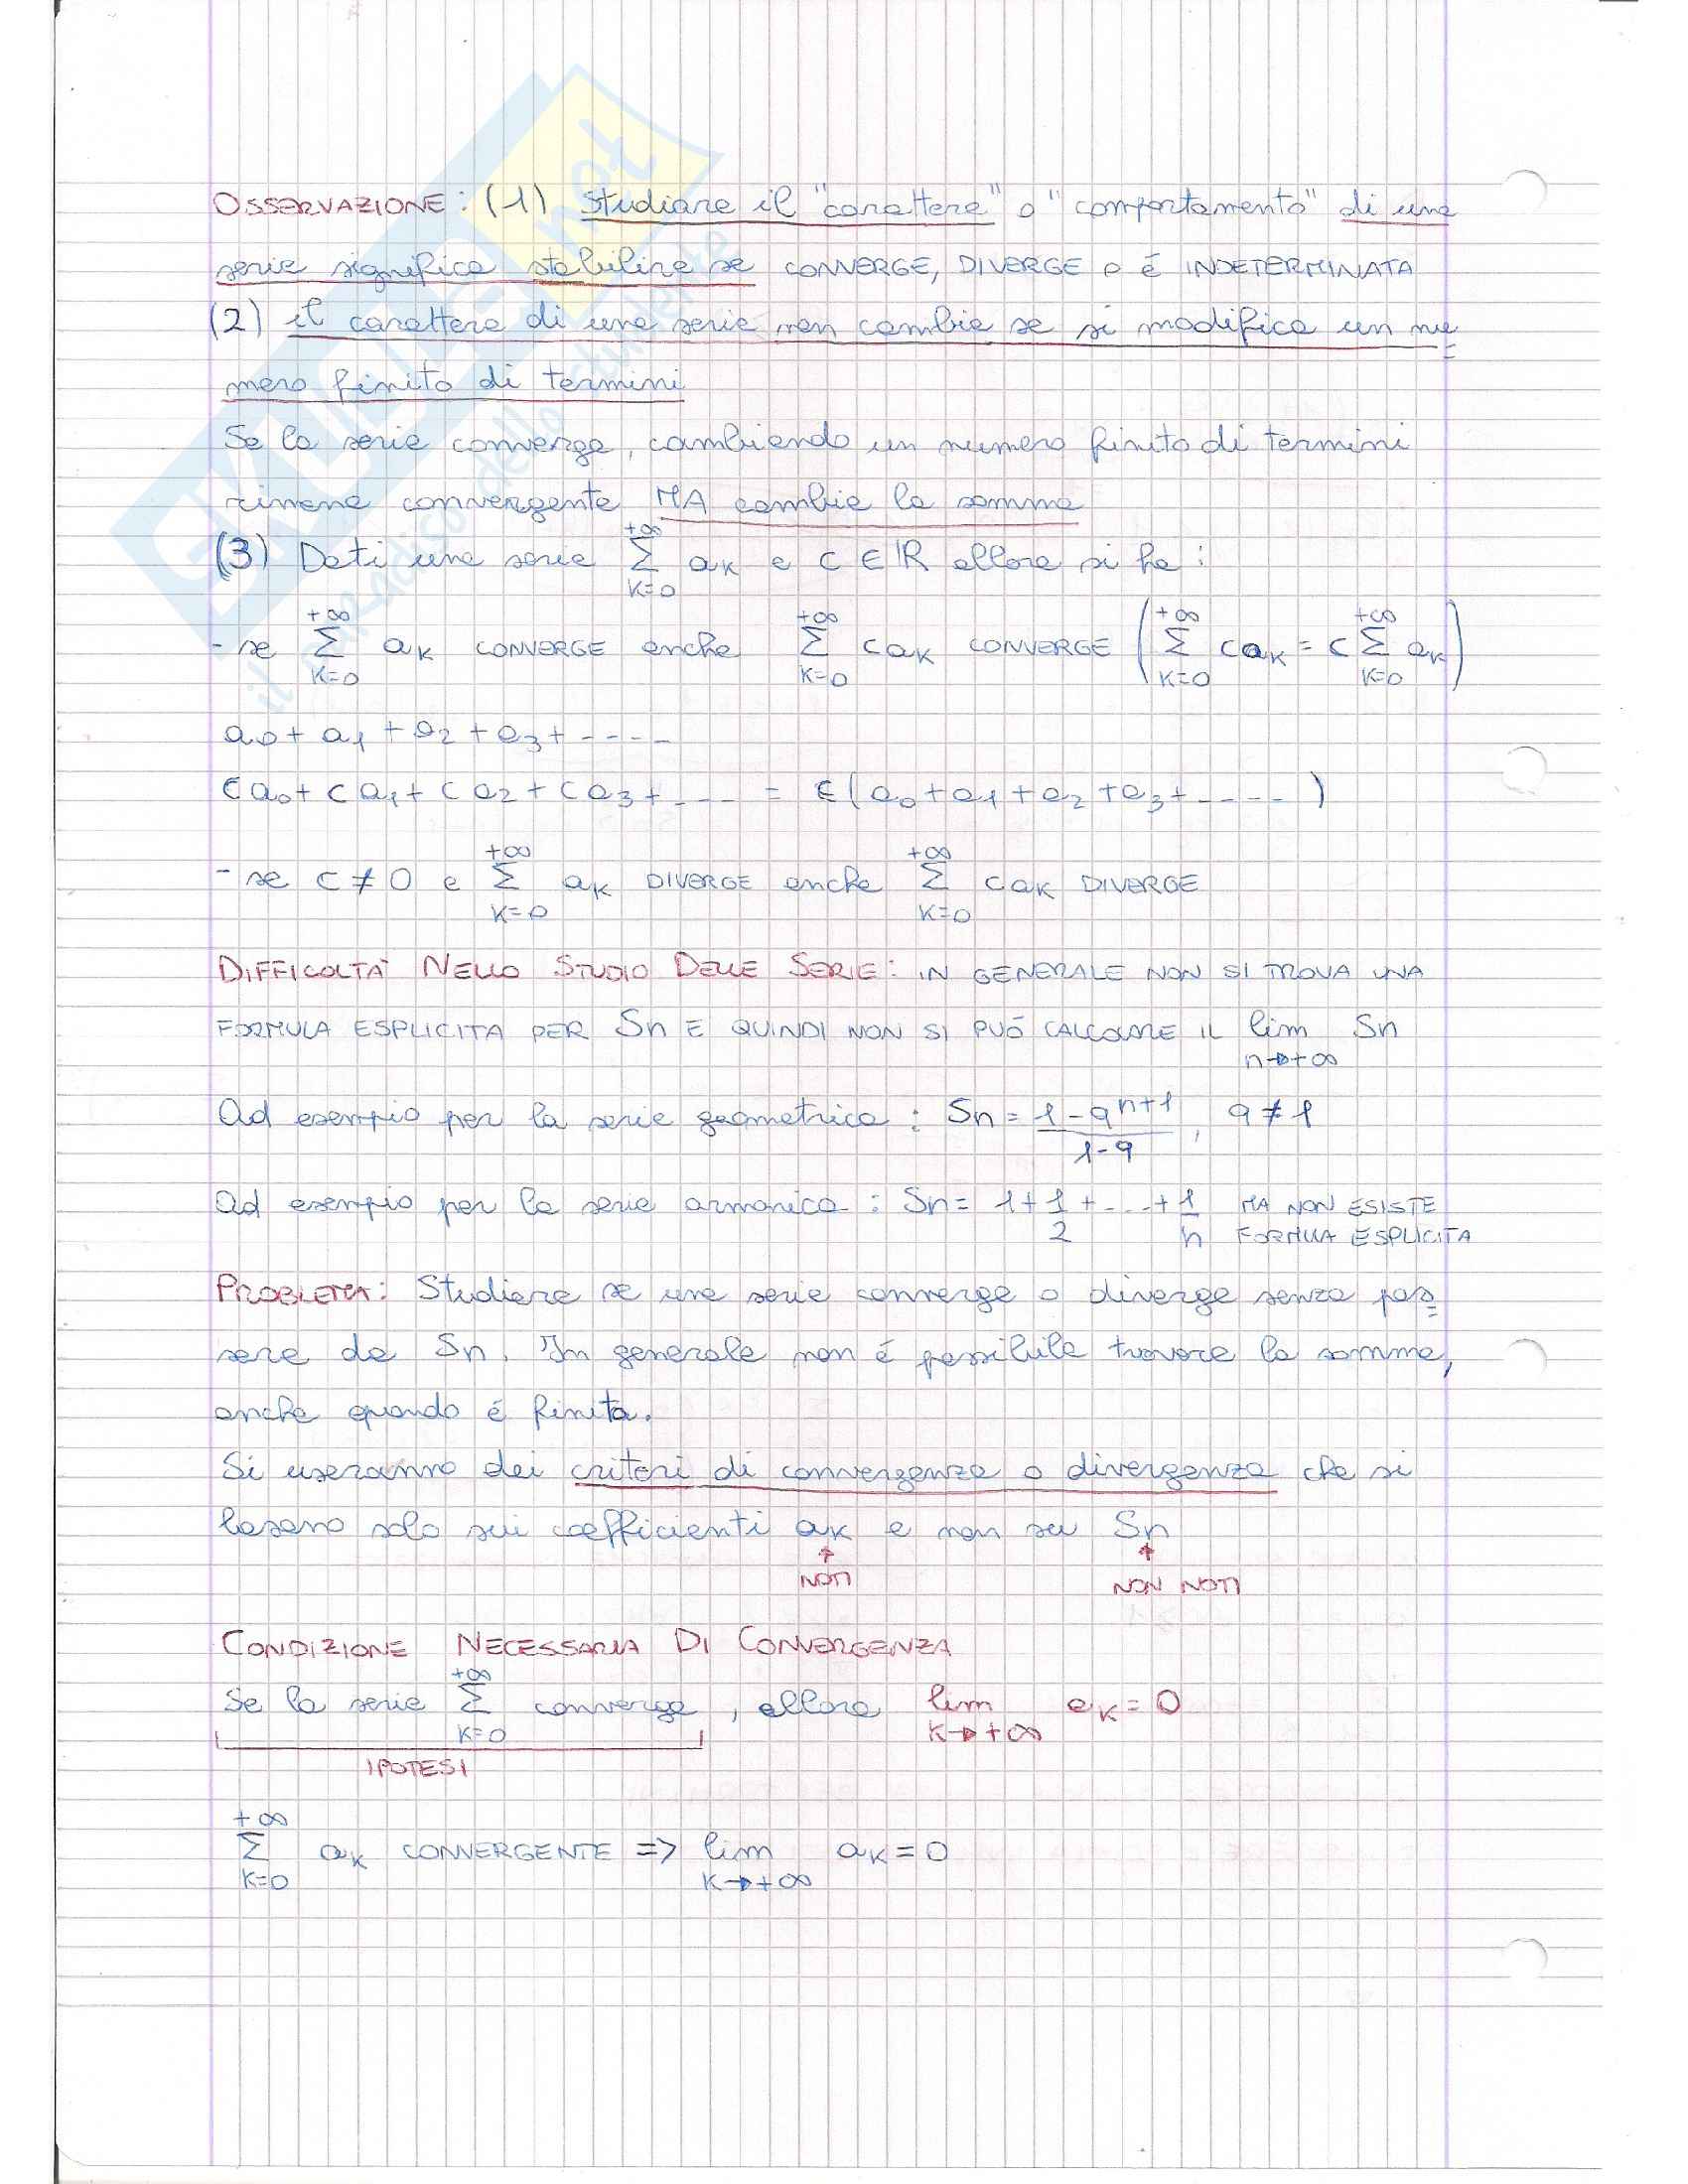 OSSERVAZIONE: (1) Studiare il "carattere" o "comportamento" di una
serie significa stabilire se CONVERGE, DIVERGE o é INDETERMINATA
(2) il carattere di una serie non cambia se si modifica un nu
mero finito di termini
Se la serie converge, cambiando un numero finito di termini
rimane convergente MA cambia la somma
(3) Dati una serie +∞ Σ K=0 aK e C ∈ ℝ allora si ha:
- se +∞ Σ K=0 aK CONVERGE anche +∞ Σ K=0 CaK CONVERGE (+∞ Σ K=0 CaK = C +∞ Σ K=0 aK)
a0 + a1 + a2 + a3 + ----
Ca0 + Ca1 + Ca2 + Ca3 + ---- = C(a0 + a1 + a2 + a3 + ----)
- se C ≠ 0 e +∞ Σ K=0 aK DIVERGE anche +∞ Σ K=0 CaK DIVERGE
DIFFICOLTA' NELLO STUDIO DELLE SERIE: IN GENERALE NON SI TROVA UNA
FORMULA ESPLICITA PER Sn E QUINDI NON SI PUÓ CALCOLARE IL lim n→+∞ Sn
Ad esempio per la serie geometrica: Sn = (1-q^(n+1))/(1-q), q ≠ 1
Ad esempio per la serie armonica: Sn = 1 + 1/2 + ... + 1/n MA NON ESISTE
FORMULA ESPLICITA
PROBLEMA: Studiare se una serie converge o diverge senza pas
sare da Sn. In generale non é possibile trovare la somma,
anche quando é finita.
Si useranno dei criteri di convergenza o divergenza che si
basano solo sui coefficienti aK e non su Sn
↑ NOTI ↑ NON NOTI
CONDIZIONE NECESSARIA DI CONVERGENZA
Se la serie +∞ Σ K=0 converge, allora lim K→+∞ aK = 0
IPOTESI
+∞ Σ K=0 aK CONVERGENTE => lim K→+∞ aK = 0
SKUOLA.net
il paradiso dello studente